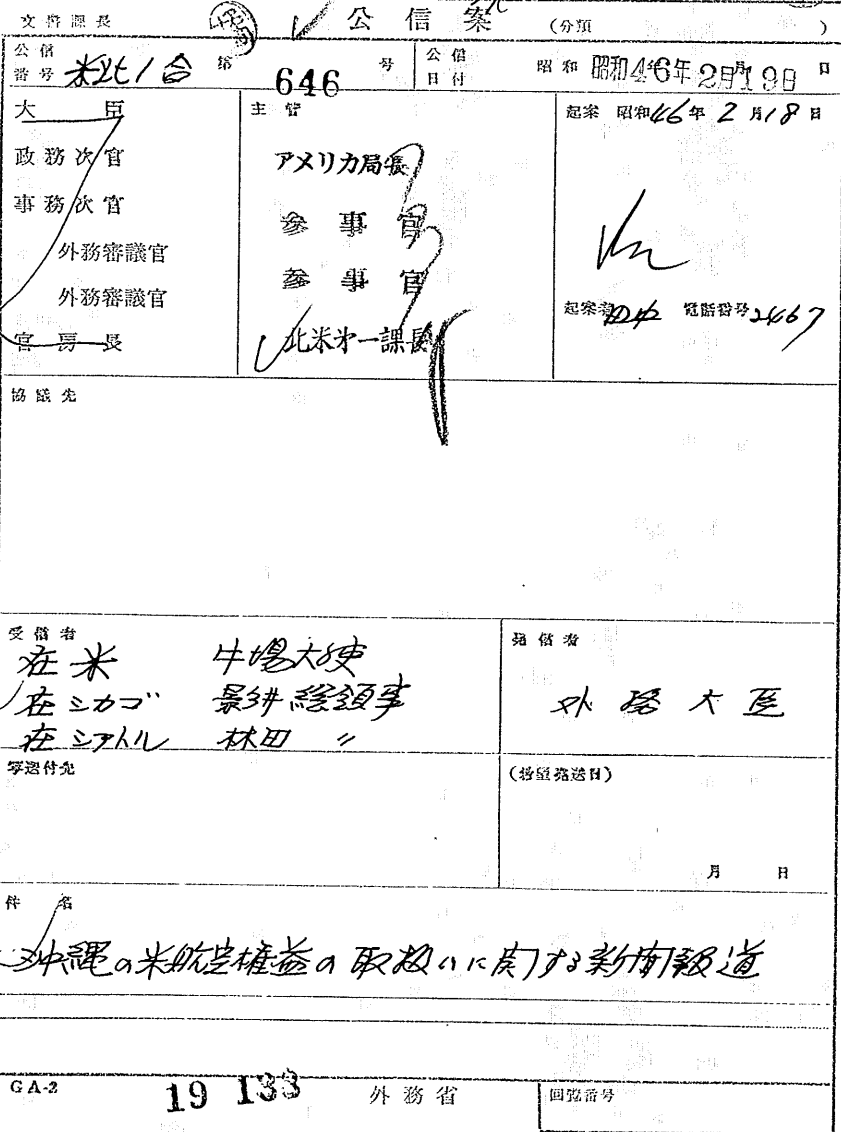 文書課長
公信案 (分類 )
公信番号 米北1合 第 646 号
公信日付 昭和 昭和46年2月19日 日
大臣
政務次官
事務次官
外務審議官
外務審議官
官房長
主管
アメリカ局長
参事官
参事官
北米第一課長
起案 昭和46年2月18日
起案者 田中 電話番号 2467
協議先
受信者
在米 牛場大使
在シカゴ 影井総領事
在シアトル 林田 〃
発信者
外務大臣
写送付先
(希望発送日)
月 日
件名
沖縄の米航空権益の取扱いに関する新聞報道
GA-2
19 133
外務省
回覧番号